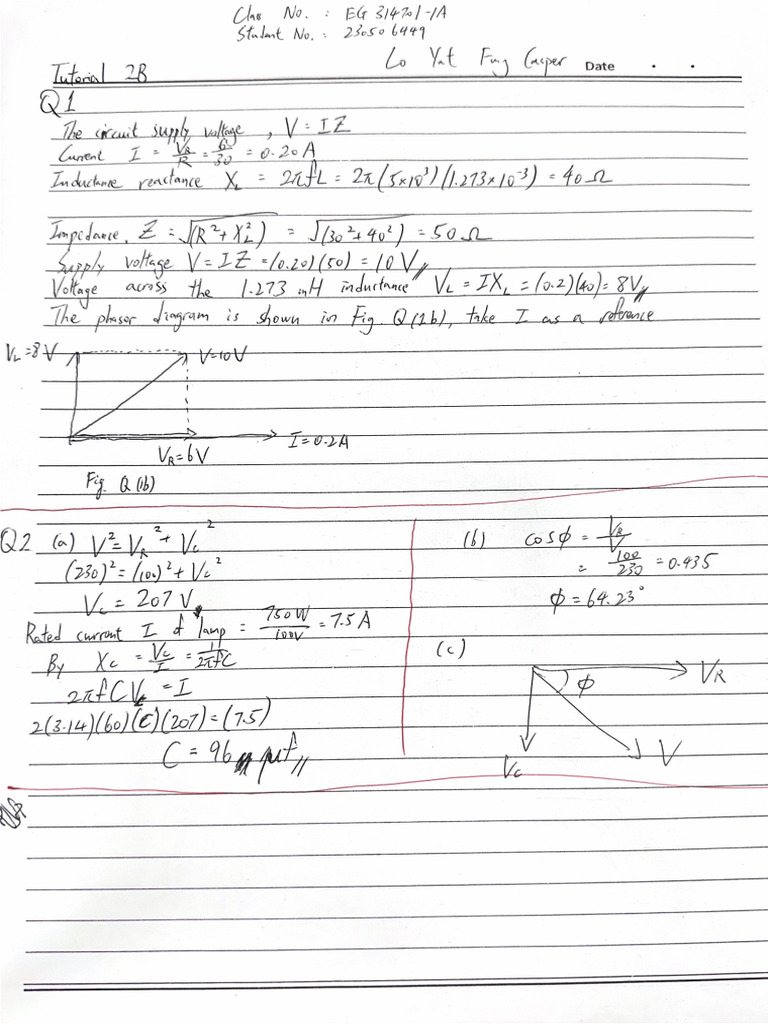 Class No. : EG 314701-1A
Student No. : 230506449
Lo Yat Fung Casper Date . .
Tutorial 2B
Q1
The circuit supply voltage , V = IZ
Current I = V_R/R = 6/30 = 0.20 A
Inductance reactance X_L = 2πfL = 2π(5×10³)(1.273×10⁻³) = 40 Ω
Impedance, Z = √(R² + X_L²) = √(30² + 40²) = 50 Ω
Supply voltage V = IZ = (0.20)(50) = 10 V//
Voltage across the 1.273 mH inductance V_L = IX_L = (0.2)(40) = 8V//
The phasor diagram is shown in Fig. Q(1b), take I as a reference
V_L = 8V V=10V
I=0.2A
V_R=6V
Fig. Q(1b)
Q2 (a) V² = V_R² + V_C²
(230)² = (100)² + V_C²
V_C = 207 V
Rated current I of lamp = 750W/100V = 7.5 A
By X_C = V_C/I = 1/2πfC
2πfCV = I
2(3.14)(60)(C)(207) = (7.5)
C = 96 μf//
(b) cosϕ = V_R/V
= 100/230 = 0.435
ϕ = 64.23°
(c)
V_R
ϕ
V_C V